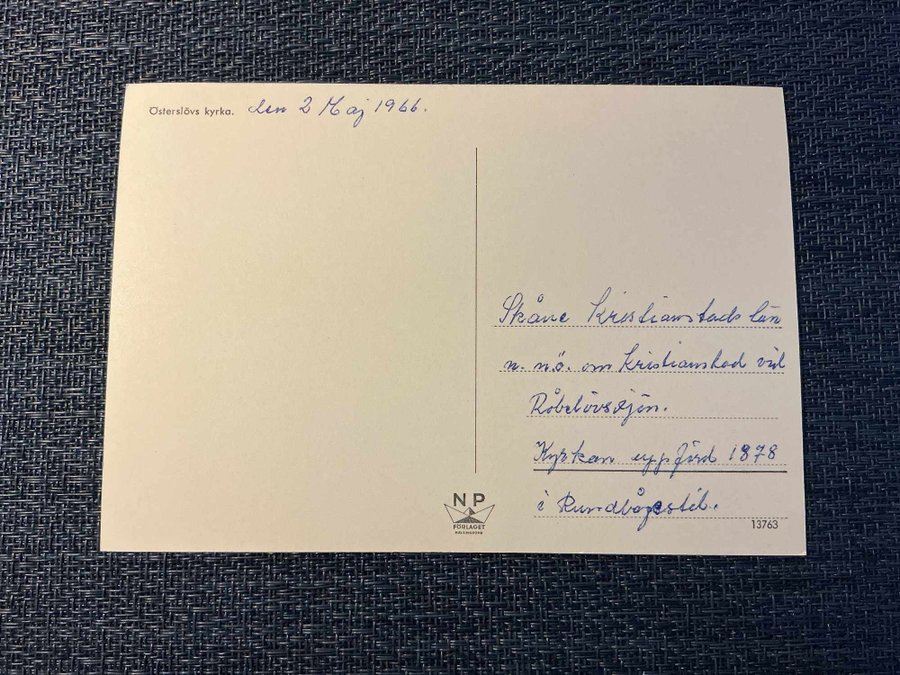 Österslövs kyrka. den 2 Maj 1966.
Skåne Kristianstads län
n. nö. om Kristianstad vid
Råbelövssjön.
Kyrkan uppförd 1878
i Rundbågestil.
NP
FÖRLAGET
HELSINGBORG
13763